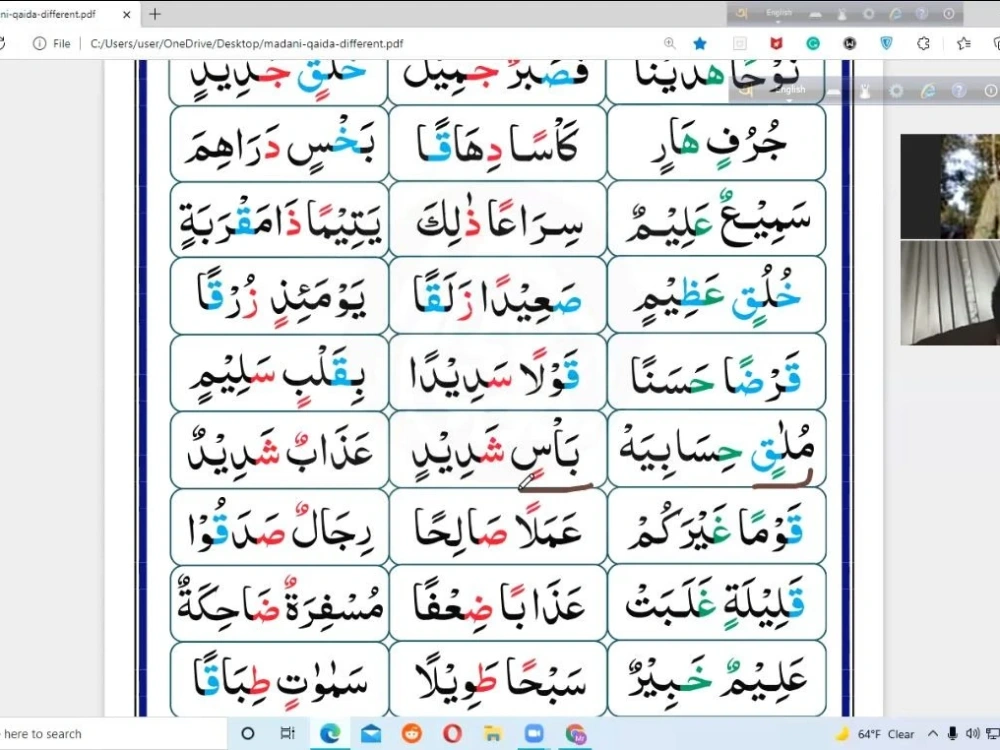 ni-qaida-different.pdf
English
File C:/Users/user/OneDrive/Desktop/madani-qaida-different.pdf
English
نُوْحًا هَدَيْنَا فَصَبْرٌ جَمِيْلٌ خَلْقٍ جَدِيْدٍ
جُرُفٍ هَارٍ كَاْسًا دِهَاقًا بَخْسٍ دَرَاهِمَ
سَمِيْعٌ عَلِيْمٌ سِرَاعًا ذٰلِكَ يَتِيْمًا ذَا مَقْرَبَةٍ
خُلُقٍ عَظِيْمٍ صَعِيْدًا زَلَقًا يَوْمَئِذٍ زُرْقًا
قَرْضًا حَسَنًا قَوْلًا سَدِيْدًا بِقَلْبٍ سَلِيْمٍ
مُلٰقٍ حِسَابِيَهْ بَاْسٍ شَدِيْدٍ عَذَابٌ شَدِيْدٌ
قَوْمًا غَيْرَكُمْ عَمَلًا صَالِحًا رِجَالٌ صَدَقُوْا
قَلِيْلَةٍ غَلَبَتْ عَذَابًا ضِعْفًا مُسْفِرَةٌ ضَاحِكَةٌ
عَلِيْمٌ خَبِيْرٌ سَبْحًا طَوِيْلًا سَمٰوٰتٍ طِبَاقًا
here to search 64°F Clear